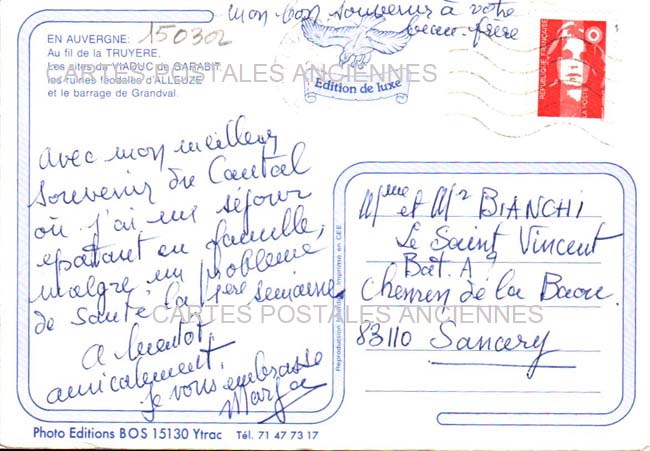 150302
mon bon souvenir à votre
beau-frère
EN AUVERGNE:
Au fil de la TRUYERE,
Les sites du VIADUC de GARABIT,
les ruines féodales d'ALLEUZE
et le barrage de Grandval.
CARTES POSTALES ANCIENNES
Edition de luxe
REPUBLIQUE FRANÇAISE
LA POSTE
avec mon meilleur
souvenir du Cantal
où j'ai un séjour
épatant en famille,
malgré un problème
de santé la 1ère semaine
A bientôt,
amicalement,
je vous embrasse
Mme et Mr BIANCHI
Le Saint Vincent
Bat. A 9
Chemin de la Baou
83110 Sanary
CARTES POSTALES ANCIENNES
Reproduction interdite. Imprimé en CEE
Photo Editions BOS 15130 Ytrac Tél. 71 47 73 17